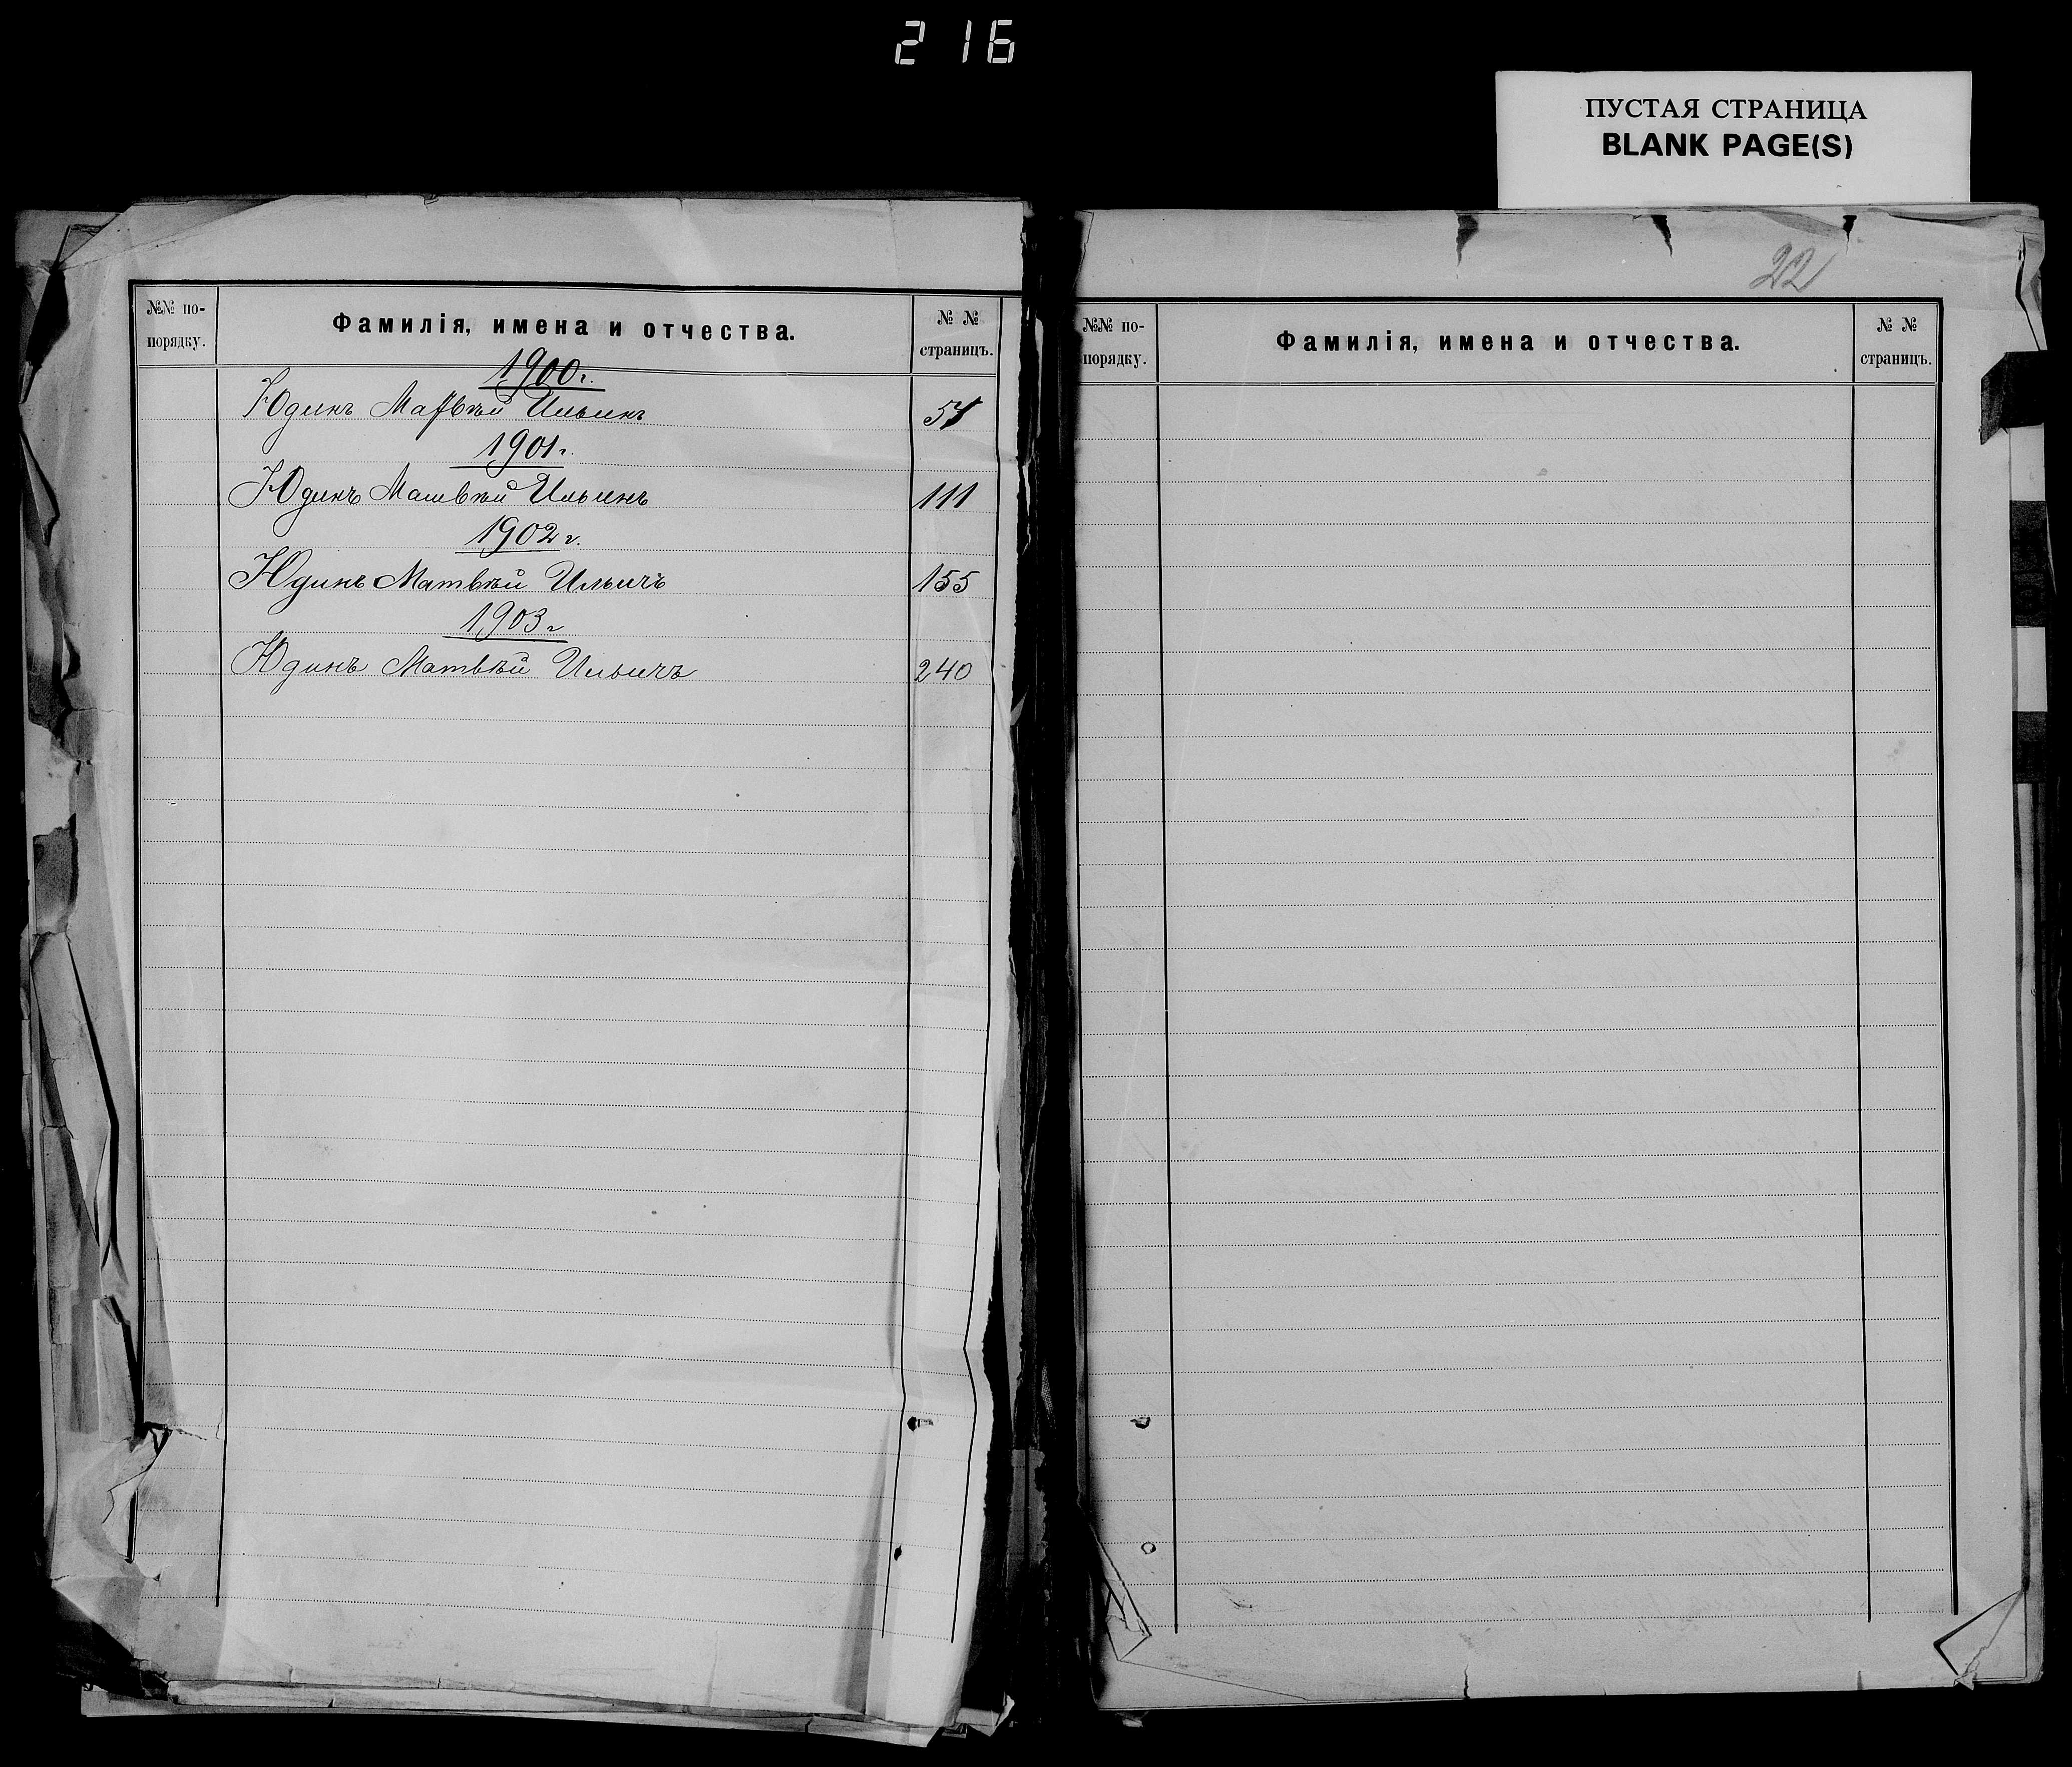 216
ПУСТАЯ СТРАНИЦА
BLANK PAGE(S)
№№ по-
порядку.
Фамилія, имена и отчества.
№ №
страницъ.
1900 г.
Юдинъ Матвѣй Ильинъ
1901 г.
Юдинъ Матвѣй Ильинъ 111
1902 г.
Юдинъ Матвѣй Ильичъ 155
1903 г
Юдинъ Матвѣй Ильичъ 240
22
№№ по-
порядку.
Фамилія, имена и отчества.
№ №
страницъ.